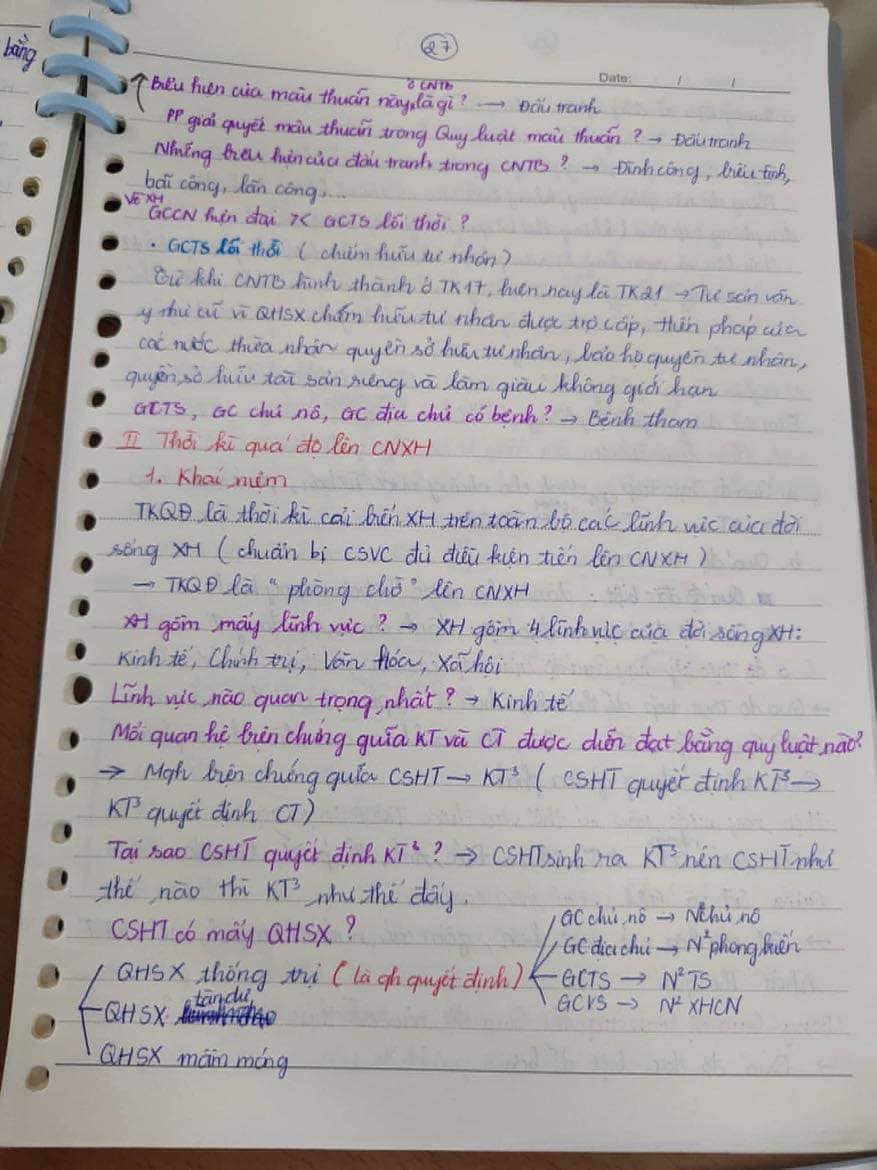 bằng
27
Date: / /
Biểu hiện của mâu thuẫn này ở CNTB là gì? → Đấu tranh
PP giải quyết mâu thuẫn trong Quy luật mâu thuẫn? → Đấu tranh
Những biểu hiện của đấu tranh trong CNTB? → Đình công, biểu tình,
bãi công, lãn công,...
Về XH
GCCN hiện đại >< GCTS lỗi thời?
• GCTS lỗi thời (chiếm hữu tư nhân)
Từ khi CNTB hình thành ở TK17, hiện nay là TK21 → Tư sản vẫn
y như cũ vì QHSX chiếm hữu tư nhân được trợ cấp, hiến pháp của
các nước thừa nhận quyền sở hữu tư nhân, bảo hộ quyền tư nhân,
quyền sở hữu tài sản riêng và làm giàu không giới hạn
GCTS, GC chủ nô, GC địa chủ có bệnh? → Bệnh tham
II Thời kì quá độ lên CNXH
1. Khái niệm
TKQĐ là thời kì cải biến XH trên toàn bộ các lĩnh vực của đời
sống XH (chuẩn bị CSVC đủ điều kiện tiến lên CNXH)
→ TKQĐ là "phòng chờ" lên CNXH
XH gồm mấy lĩnh vực? → XH gồm 4 lĩnh vực của đời sống XH:
Kinh tế, Chính trị, Văn hóa, Xã hội
Lĩnh vực nào quan trọng nhất? → Kinh tế
Mối quan hệ biện chứng giữa KT và CT được diễn đạt bằng quy luật nào?
→ Mqh biện chứng giữa CSHT → KT³ (CSHT quyết định KT³ →
KT³ quyết định CT)
Tại sao CSHT quyết định KT³? → CSHT sinh ra KT³ nên CSHT như
thế nào thì KT³ như thế đấy.
CSHT có mấy QHSX?
QHSX thống trị (là qh quyết định)
GC chủ nô → N² chủ nô
GC địa chủ → N² phong kiến
GCTS → N² TS
GCVS → N² XHCN
QHSX tàn dư
QHSX mầm mống